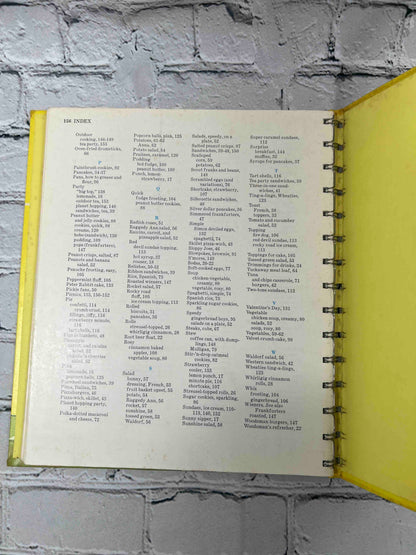 156 INDEX
Outdoor
cooking, 146-149
tea party, 155
Oven-Fried drumsticks,
66
P
Paintbrush cookies, 93
Pancakes, 34-37
Pans, how to grease and
flour, 98
Party
"big top," 138
lemonade, 15
outdoor tea, 155
planet hopping, 140
sandwiches, tea, 39
Peanut butter
and jelly cookies, 88
cookies, quick, 89
creams, 109
hobo (sandwich), 138
pudding, 109
sugar frankfurters,
147
Peanut crisps, salted, 87
Peanuts and banana
salad, 52
Penuche frosting, easy,
105
Peppermint fluff, 105
Peter Rabbit cake, 133
Pickle fans, 39
Picnics, 153, 150-152
Pie
confetti, 114
crumb crust, 114
fillings, off, 116
strawberry minute,
116
tart shells, 116
Pigs in blankets, 48
Pineapple
carrot, and raisins
salad, 52
dakota's cherries
salad, 52
Pink
lemonade, 15
popcorn balls, 125
Pinwheel sandwiches, 39
Pizza, minute, 49
Pizzaburgers, 46
Pizza-wich, skillet, 43
Planet hopping party,
140
Polka-dotted macaroni
and cheese, 72
Popcorn balls, pink, 125
Potatoes, 61-62
Anna, 62
Potato salad, 54
Pralines, caramel, 129
Pudding
hot fudge, 109
peanut butter, 109
Punch, lemon-
strawberry, 17
Q
Quick
fudge frosting, 104
peanut butter cookies,
88
R
Radish roses, 51
Raggedy Ann salad, 56
Raisins, carrot, and
pineapple salad, 52
Red
devil sundae topping,
113
hot syrup, 37
roaster, 33
Relishes, 50-51
Ribbon sandwiches, 39
Rice, Spanish, 73
Roasted wieners, 147
Rocket salad, 57
Rocky road
fluff, 105
ice cream topping, 112
Rolled
biscuits, 31
pancakes, 36
Rolls
streusel-topped, 28
whirligig cinnamon, 28
Root beer float, 22
Rosy
cinnamon baked
apples, 108
vegetable soup, 80
S
Salad
bunny, 57
dressing, French, 53
fruit basket upset, 55
potato, 54
Raggedy Ann, 56
rocket, 57
sunshine, 58
tossed green, 53
Waldorf, 56
Salads, speedy, on a
plate, 52
Salted peanut crisps, 87
Sandwiches, 39-49, 150
Scalloped
corn, 59
potatoes, 62
Scout franks and beans,
149
Scrambled eggs (and
variations), 76
Shortcake, strawberry,
107
Silhouette sandwiches,
40
Silver dollar pancakes, 36
Simmered frankfurters,
47
Simple
Simon deviled eggs,
132
spaghetti, 74
Skillet pizza-wich, 43
Sloppy Joes, 46
Slowpokes, brownie, 91
S'mores, 149
Sodas, 20-22
Soft-cooked eggs, 77
Soup
chicken, vegetable,
creamy, 80
vegetable, rosy, 80
Spaghetti, simple, 74
Spanish rice, 73
Sparkling sugar cookies,
86
Speedy
gingerbread boys, 95
salads on a plate, 52
Steaks, cube, 67
Stew
coffee can, with dump-
lings, 148
Mulligan, 79
Stir-'n-drop oatmeal
cookies, 82
Strawberry
cooler, 133
lemon punch, 17
minute pie, 116
shortcake, 107
Streusel-topped rolls, 28
Sugar cookies, sparkling,
86
Sundaes, ice cream, 110-
113, 140, 133
Sunny sipper, 17
Sunshine salad, 58
Super caramel sundaes,
112
Surprise
breakfast, 144
muffins, 26
Syrups for pancakes, 37
T
Tart shells, 116
Tea party sandwiches, 39
Three-in-one sand-
wiches, 41
Ting-a-lings, Wheaties,
123
Toast
French, 38
toppers, 33
Tomato and cucumber
salad, 52
Topping
fluff, 105
red devil sundae, 113
rocky road ice cream,
113
Toppings for cake, 105
Tossed green salad, 53
Trimmings for drinks, 24
Turkaway meat loaf, 64
Tuna
and chips casserole, 71
burgers, 42
Two-tone sundaes, 112
V
Valentine's Day, 131
Vegetable
chicken soup, creamy, 80
salads, 52
soup, rosy, 80
Vegetables, 59-62
Velvet crumb cake, 98
W
Waldorf salad, 56
Western sandwich, 42
Wheaties ting-a-lings,
123
Whirligig cinnamon
rolls, 28
Whiz
frosting, 104
gingerbread, 106
Wieners. See also
Frankfurters
roasted, 147
Woodsman burgers, 147
Woodsman's refresher, 22